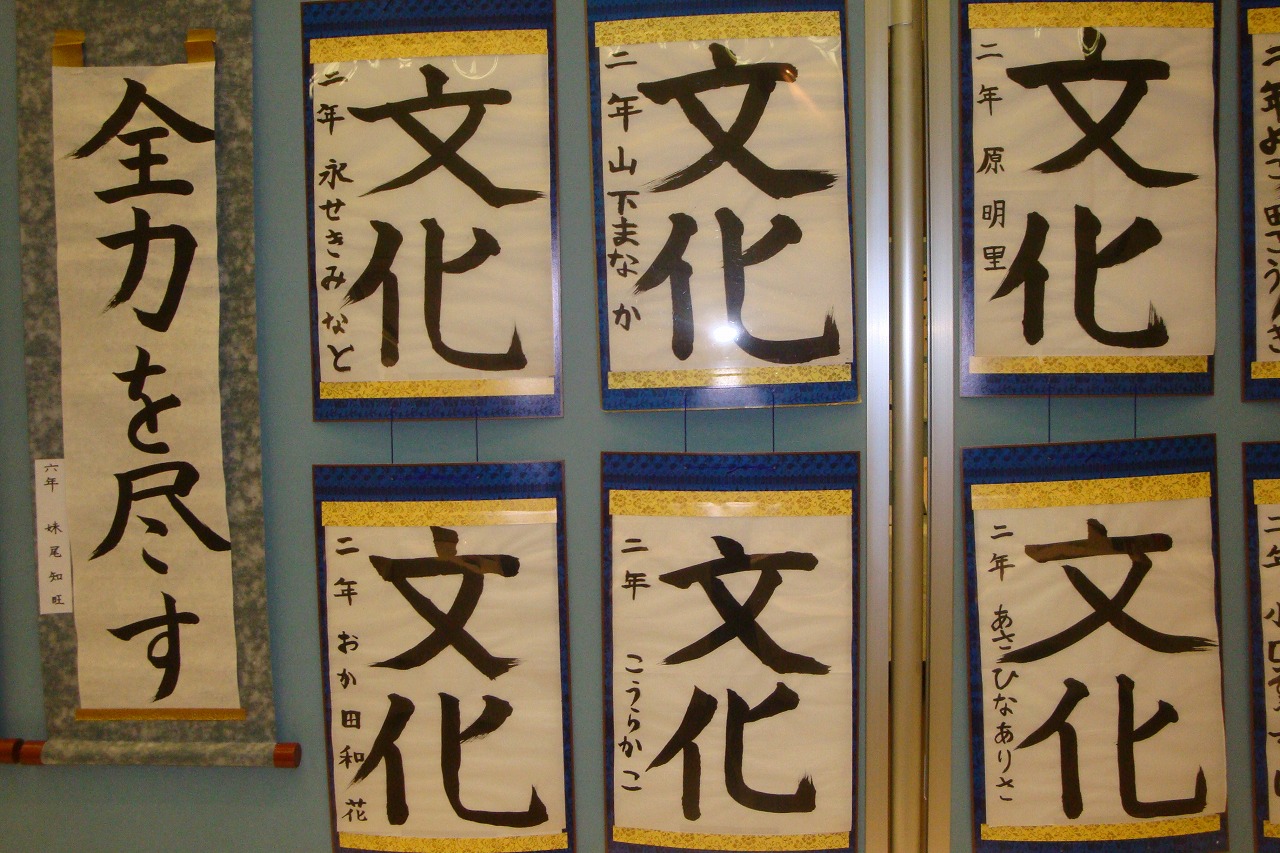 全力を尽す
六年 妹尾知旺
文化
二年 永せきみなと
文化
二年 山下まなか
文化
二年 原明里
文化
二年 おか田和花
文化
二年 こうらかこ
文化
二年 あさひなありさ
二年
二年